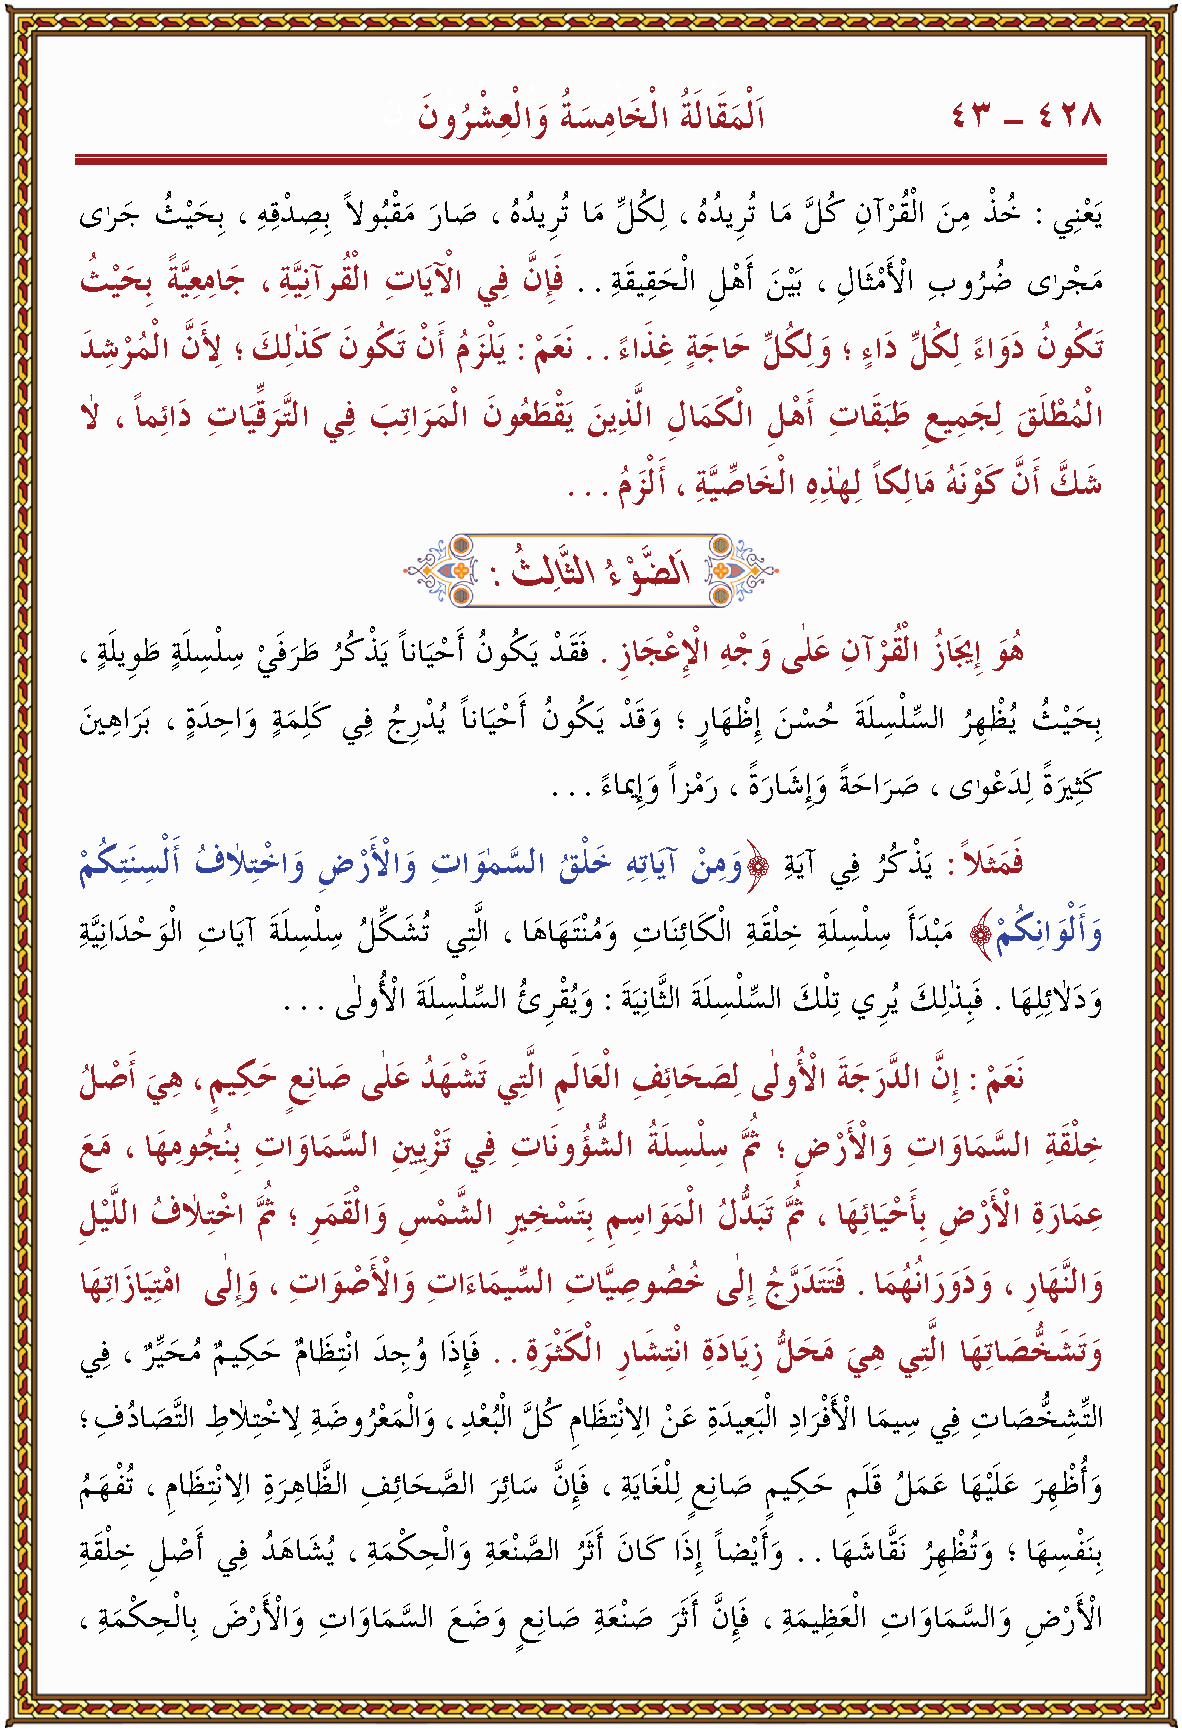 ٤٢٨ – ٤٣ اَلْمَقَالَةُ الْخَامِسَةُ وَالْعِشْرُونَ
يَعْنِي : خُذْ مِنَ الْقُرْآنِ كُلَّ مَا تُرِيدُهُ ، لِكُلِّ مَا تُرِيدُهُ ، صَارَ مَقْبُولاً بِصِدْقِهِ ، بِحَيْثُ جَرٰى
مَجْرٰى ضُرُوبِ الْأَمْثَالِ ، بَيْنَ أَهْلِ الْحَقِيقَةِ . . فَإِنَّ فِي الْآيَاتِ الْقُرْآنِيَّةِ ، جَامِعِيَّةً بِحَيْثُ
تَكُونُ دَوَاءً لِكُلِّ دَاءٍ ؛ وَلِكُلِّ حَاجَةٍ غِذَاءً . . نَعَمْ : يَلْزَمُ أَنْ تَكُونَ كَذٰلِكَ ؛ لِأَنَّ الْمُرْشِدَ
الْمُطْلَقَ لِجَمِيعِ طَبَقَاتِ أَهْلِ الْكَمَالِ الَّذِينَ يَقْطَعُونَ الْمَرَاتِبَ فِي التَّرَقِّيَاتِ دَائِماً ، لَا
شَكَّ أَنَّ كَوْنَهُ مَالِكاً لِهٰذِهِ الْخَاصِّيَّةِ ، أَلْزَمُ . . .
اَلضَّوْءُ الثَّالِثُ :
هُوَ إِيجَازُ الْقُرْآنِ عَلٰى وَجْهِ الْإِعْجَازِ . فَقَدْ يَكُونُ أَحْيَاناً يَذْكُرُ طَرَفَيْ سِلْسِلَةٍ طَوِيلَةٍ ،
بِحَيْثُ يُظْهِرُ السِّلْسِلَةَ حُسْنَ إِظْهَارٍ ؛ وَقَدْ يَكُونُ أَحْيَاناً يُدْرِجُ فِي كَلِمَةٍ وَاحِدَةٍ ، بَرَاهِينَ
كَثِيرَةً لِدَعْوٰى ، صَرَاحَةً وَإِشَارَةً ، رَمْزاً وَإِيمَاءً . . .
فَمَثَلاً : يَذْكُرُ فِي آيَةِ ﴿وَمِنْ آيَاتِهِ خَلْقُ السَّمٰوَاتِ وَالْأَرْضِ وَاخْتِلَافُ أَلْسِنَتِكُمْ
وَأَلْوَانِكُمْ﴾ مَبْدَأَ سِلْسِلَةِ خِلْقَةِ الْكَائِنَاتِ وَمُنْتَهَاهَا ، الَّتِي تُشَكِّلُ سِلْسِلَةَ آيَاتِ الْوَحْدَانِيَّةِ
وَدَلَائِلِهَا . فَبِذٰلِكَ يُرِي تِلْكَ السِّلْسِلَةَ الثَّانِيَةَ : وَيُقْرِئُ السِّلْسِلَةَ الْأُولٰى . . .
نَعَمْ : إِنَّ الدَّرَجَةَ الْأُولٰى لِصَحَائِفِ الْعَالَمِ الَّتِي تَشْهَدُ عَلٰى صَانِعٍ حَكِيمٍ ، هِيَ أَصْلُ
خِلْقَةِ السَّمَاوَاتِ وَالْأَرْضِ ؛ ثُمَّ سِلْسِلَةُ الشُّؤُونَاتِ فِي تَزْيِينِ السَّمَاوَاتِ بِنُجُومِهَا ، مَعَ
عِمَارَةِ الْأَرْضِ بِأَحْيَائِهَا ، ثُمَّ تَبَدُّلُ الْمَوَاسِمِ بِتَسْخِيرِ الشَّمْسِ وَالْقَمَرِ ؛ ثُمَّ اخْتِلَافُ اللَّيْلِ
وَالنَّهَارِ ، وَدَوَرَانُهُمَا . فَتَتَدَرَّجُ إِلٰى خُصُوصِيَّاتِ السِّيمَاءَاتِ وَالْأَصْوَاتِ ، وَإِلٰى امْتِيَازَاتِهَا
وَتَشَخُّصَاتِهَا الَّتِي هِيَ مَحَلُّ زِيَادَةِ انْتِشَارِ الْكَثْرَةِ . . فَإِذَا وُجِدَ انْتِظَامٌ حَكِيمٌ مُحَيِّرٌ ، فِي
التِّشَخُّصَاتِ فِي سِيمَا الْأَفْرَادِ الْبَعِيدَةِ عَنْ الِانْتِظَامِ كُلَّ الْبُعْدِ ، وَالْمَعْرُوضَةِ لِاخْتِلَاطِ التَّصَادُفِ ؛
وَأُظْهِرَ عَلَيْهَا عَمَلُ قَلَمِ حَكِيمٍ صَانِعٍ لِلْغَايَةِ ، فَإِنَّ سَائِرَ الصَّحَائِفِ الظَّاهِرَةِ الِانْتِظَامِ ، تُفْهَمُ
بِنَفْسِهَا ؛ وَتُظْهِرُ نَقَّاشَهَا . . وَأَيْضاً إِذَا كَانَ أَثَرُ الصَّنْعَةِ وَالْحِكْمَةِ ، يُشَاهَدُ فِي أَصْلِ خِلْقَةِ
الْأَرْضِ وَالسَّمَاوَاتِ الْعَظِيمَةِ ، فَإِنَّ أَثَرَ صَنْعَةِ صَانِعٍ وَضَعَ السَّمَاوَاتِ وَالْأَرْضَ بِالْحِكْمَةِ ،